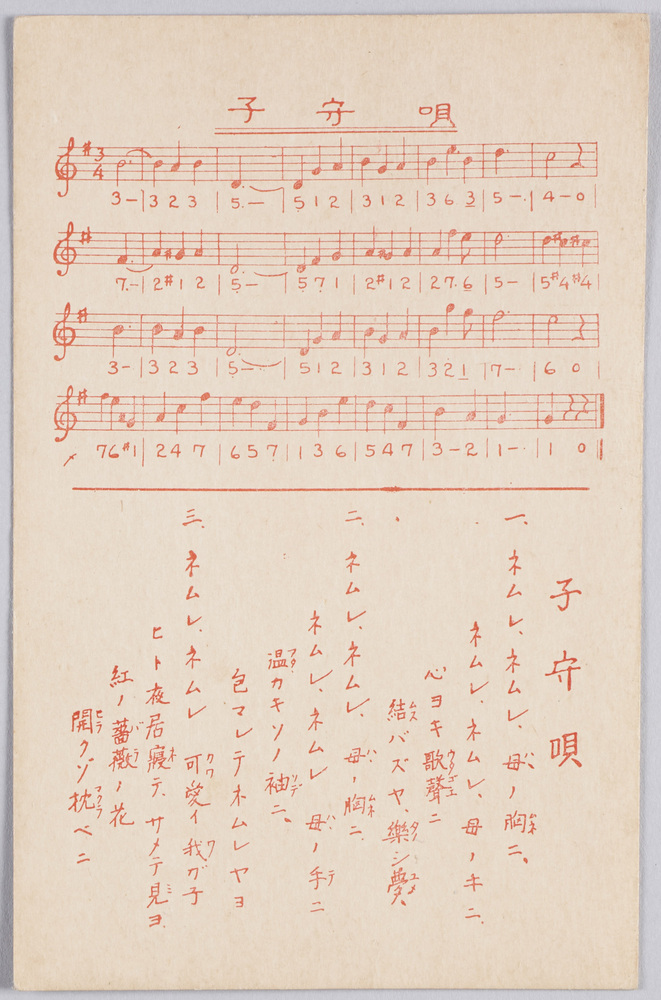 子守唄
3 4
3 – | 3 2 3 | 5. – | 5 1 2 | 3 1 2 | 3 6 3 | 5 – · | 4 – 0
7. – | 2 #1 2 | 5 – | 5 7 1 | 2 #1 2 | 2 7. 6 | 5 – | 5 #4 #4
3 – | 3 2 3 | 5 – · | 5 1 2 | 3 1 2 | 3 2 1 | 7 – · | 6 0
7 6 #1 | 2 4 7 | 6 5 7 | 1 3 6 | 5 4 7 | 3 – 2 | 1 – · | 1 0
子守唄
一、ネムレ、ネムレ、母ノ胸ニ、
ネムレ、ネムレ、母ノ手ニ
心ヨキ歌聲ニ
結バズヤ、樂シ夢、
二、ネムレ、ネムレ、母ノ胸ニ
ネムレ、ネムレ 母ノ手ニ
温カキソノ袖ニ、
包マレテネムレヤヨ
三、ネムレ、ネムレ 可愛イ我ガ子
ヒト夜居寢テ、サメテ見ヨ
紅ノ薔薇ノ花
開クゾ枕ベニ